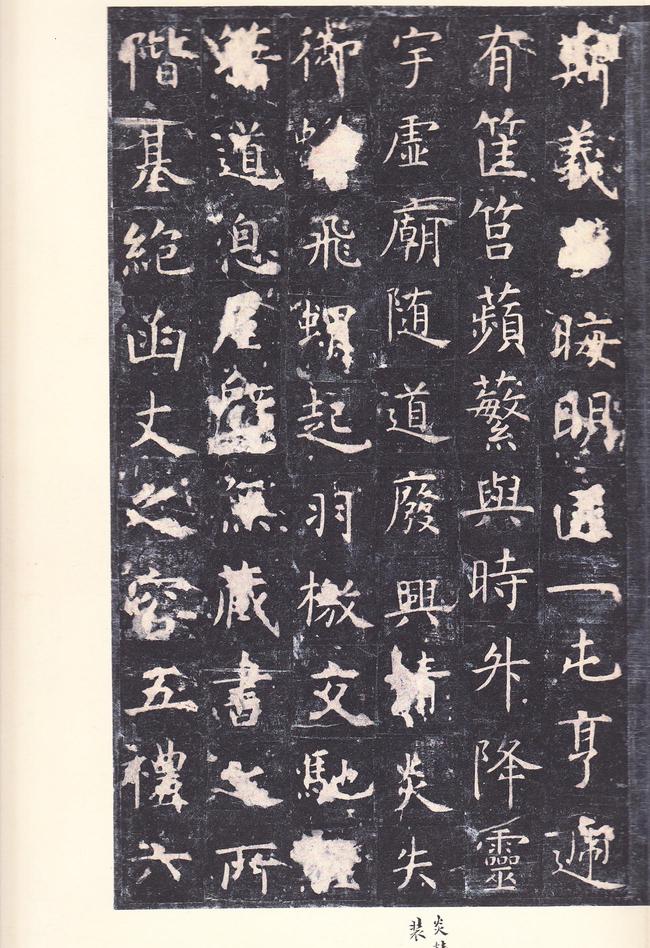 斯義晦明匪一屯亨遞
有筐筥蘋蘩與時升降靈
宇虛廟随道廢興精炎失
御飛蝟起羽檄交馳
籍道息屋壁無藏書之所
階基絶函丈之容五禮六
炎
裝